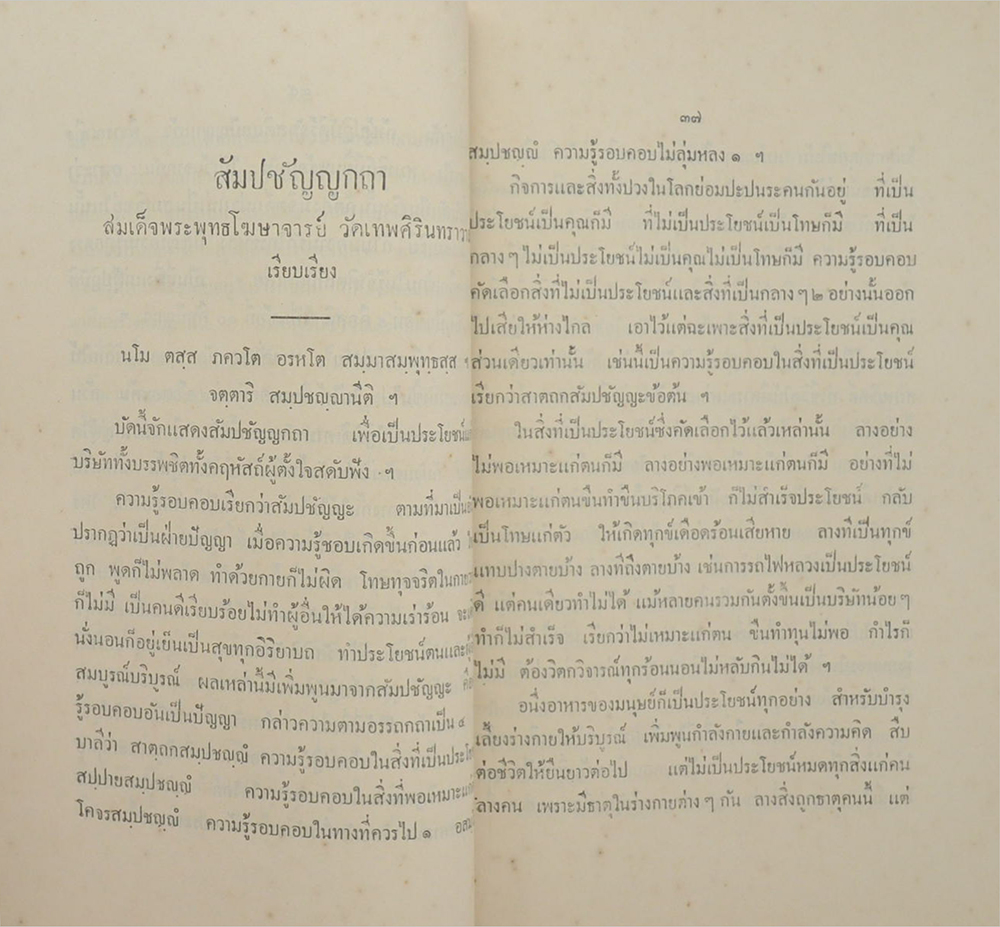 สัมปชัญญกถา
สมเด็จพระพุทธโฆษาจารย์ วัดเทพศิรินทราว
เรียบเรียง
นโม ตสฺส ภควโต อรหโต สมฺมาสมฺพุทฺธสฺส ฯ
จตฺตาริ สมฺปชญฺญานีติ ฯ
บัดนี้จักแสดงสัมปชัญญกถา เพื่อเป็นประโยชน์
บริษัททั้งบรรพชิตทั้งคฤหัสถ์ผู้ตั้งใจสดับฟัง ฯ
ความรู้รอบคอบเรียกว่าสัมปชัญญะ ตามที่มาเป็น
ปรากฏว่าเป็นฝ่ายปัญญา เมื่อความรู้ชอบเกิดขึ้นก่อนแล้ว
ถูก พูดก็ไม่พลาด ทำด้วยกายก็ไม่ผิด โทษทุจจริตในกาย
ก็ไม่มี เป็นคนดีเรียบร้อยไม่ทำผู้อื่นให้ได้ความเร่าร้อน
นั่งนอนก็อยู่เย็นเป็นสุขทุกอิริยาบถ ทำประโยชน์ตนและ
สมบูรณ์บริบูรณ์ ผลเหล่านี้มีเพิ่มพูนมาจากสัมปชัญญะ คือ
รู้รอบคอบอันเป็นปัญญา กล่าวความตามอรรถกถาเป็น ๔
บาลีว่า สาตฺถกสมฺปชญฺญํ ความรู้รอบคอบในสิ่งที่เป็นประโย
สปฺปายสมฺปชญฺญํ ความรู้รอบคอบในสิ่งที่พอเหมาะแก่
โคจรสมฺปชญฺญํ ความรู้รอบคอบในทางที่ควรไป ๑ อสม
๓๗
สมฺปชญฺญํ ความรู้รอบคอบไม่ลุ่มหลง ๑ ฯ
กิจการและสิ่งทั้งปวงในโลกย่อมปะปนระคนกันอยู่ ที่เป็น
ประโยชน์เป็นคุณก็มี ที่ไม่เป็นประโยชน์เป็นโทษก็มี ที่เป็น
กลาง ๆ ไม่เป็นประโยชน์ไม่เป็นคุณไม่เป็นโทษก็มี ความรู้รอบคอบ
คัดเลือกสิ่งที่ไม่เป็นประโยชน์และสิ่งที่เป็นกลาง ๆ ๒ อย่างนั้นออก
ไปเสียให้ห่างไกล เอาไว้แต่ฉะเพาะสิ่งที่เป็นประโยชน์เป็นคุณ
ส่วนเดียวเท่านั้น เช่นนี้เป็นความรู้รอบคอบในสิ่งที่เป็นประโยชน์
เรียกว่าสาตถกสัมปชัญญะข้อต้น ฯ
ในสิ่งที่เป็นประโยชน์ซึ่งคัดเลือกไว้แล้วเหล่านั้น ลางอย่าง
ไม่พอเหมาะแก่ตนก็มี ลางอย่างพอเหมาะแก่ตนก็มี อย่างที่ไม่
พอเหมาะแก่ตนขืนทำขืนบริโภคเข้า ก็ไม่สำเร็จประโยชน์ กลับ
เป็นโทษแก่ตัว ให้เกิดทุกข์เดือดร้อนเสียหาย ลางทีเป็นทุกข์
แทบปางตายบ้าง ลางทีถึงตายบ้าง เช่นการรถไฟหลวงเป็นประโยชน์
ดี แต่คนเดียวทำไม่ได้ แม้หลายคนรวมกันตั้งขึ้นเป็นบริษัทน้อย ๆ
ทำก็ไม่สำเร็จ เรียกว่าไม่เหมาะแก่ตน ขืนทำทุนไม่พอ กำไรก็
ไม่มี ต้องวิตกวิจารณ์ทุกร้อนนอนไม่หลับกินไม่ได้ ฯ
อนึ่งอาหารของมนุษย์ก็เป็นประโยชน์ทุกอย่าง สำหรับบำรุง
เลี้ยงร่างกายให้บริบูรณ์ เพิ่มพูนกำลังกายและกำลังความคิด สืบ
ต่อชีวิตให้ยืนยาวต่อไป แต่ไม่เป็นประโยชน์หมดทุกสิ่งแก่คน
ลางคน เพราะมีธาตุในร่างกายต่าง ๆ กัน ลางสิ่งถูกธาตุคนนี้ แต่